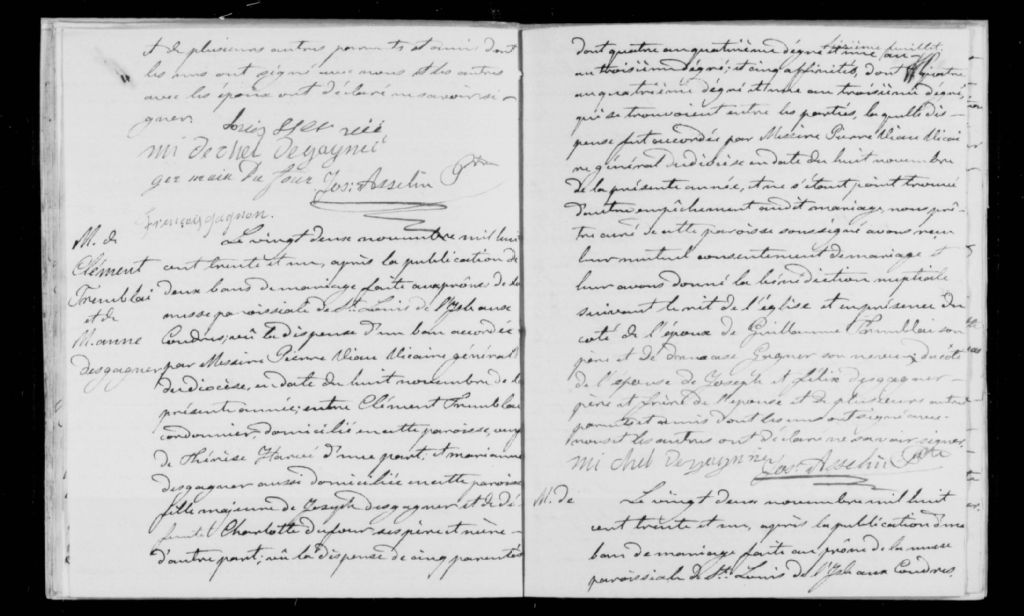 et de plusieurs autres parents et amis dont
les uns ont signé avec nous et les autres
avec les époux ont déclaré ne savoir si-
gner
mi dechel Degagnie
germain Dufour Jos: Asselin Ptre
François gagnon.
M. de
Clément
Tremblai
et de
M. anne
desgagner
Le vingt deux novembre mil huit
cent trente et un, après la publication de
deux bans de mariage faite aux prônes de la
messe paroissiale de St. Louis de l'Isle aux
Coudres; vû la dispense d'un ban accordée
par Messire Pierre Viau Vicaire général
du diocèse, en date du huit novembre de la
présente année; entre Clément Tremblai
cordonnier, domicilié en cette paroisse, veuf
de Thérèse Harvei d'une part; et marianne
desgagner aussi domiciliée en cette paroisse
fille majeure de Joseph desgagner et de dé-
funte Charlotte dufour, ses père et mère
d'autre part; vû la dispense de cinq parentés
sixième feuillet.
dont quatre au quatrième dégré et une au
au troisième dégré; et cinq affinités, dont quatre
au quatrième dégré et une au troisième dégré,
qui se trouvoient entre les parties, laquelle dis-
pense fut accordée par Messire Pierre Viau Vicai
re général du diocèse en date du huit novembre
de la présente année, et ne s'étant point trouvé
d'autre empêchement audit mariage, nous prê-
tre curé de cette paroisse soussigné avons reçu
leur mutuel consentement de mariage et
leur avons donné la bénédiction nuptiale
suivant le rit de l'église et en présence du
coté de l'époux de Guillaume Tremblai son
père et de Gagner son neveu; du côté
de l'épouse de Joseph et félix desgagner
père et frère de l'épouse et de plusieurs autres
parents et amis dont les uns ont signé avec
nous et les autres ont déclaré ne savoir signer.
mi chel Degagnner Jos: Asselin Ptre
M. de
Le vingt deux novembre mil huit
cent trente et un, après la publication d'un
ban de mariage faite au prône de la messe
paroissiale de St. Louis de l'Isle aux Coudres,